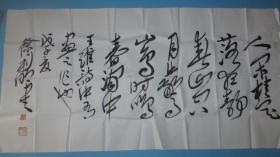 人闲桂花
落夜静
春山空
月出惊
山鸟时鸣
春涧中
王维诗
戊子夏